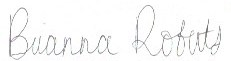 Brianna Roberts